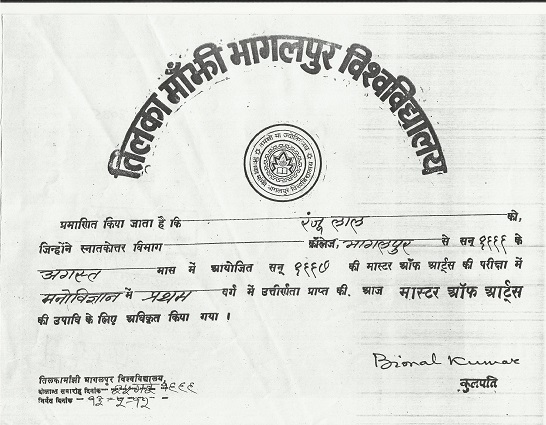 तिलका माँझी भागलपुर विश्वविद्यालय
प्रमाणित किया जाता है कि रंजू लाल को,
जिन्होंने स्नातकोत्तर विभाग कॉलेज, भागलपुर से सन् १९९९ के
अगस्त मास में आयोजित सन् १९९७ की मास्टर ऑफ आर्ट्स की परीक्षा में
मनोविज्ञान में प्रथम वर्ग में उत्तीर्णता प्राप्त की, आज मास्टर ऑफ आर्ट्स
की उपाधि के लिए अधिकृत किया गया ।
कुलपति
तिलकामाँझी भागलपुर विश्वविद्यालय,
दीक्षान्त समारोह दिनांक १९९९
निर्गत दिनांक